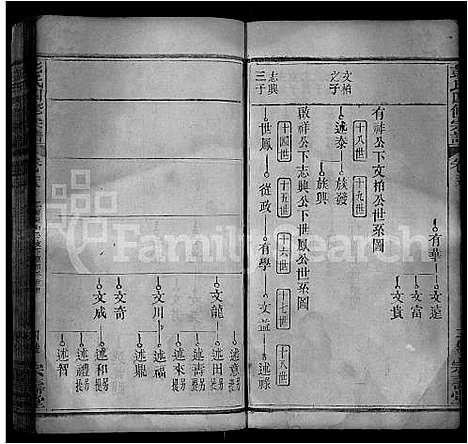 有華
文遠
文富
文貴
有祥公下文柏公世系圖
十八世
十九世
文柏之子
述泰
族發
族興
啟祥公下志興公世鳳公世系圖
十四世
十五世
十六世
十七世
十八世
志興三子
世鳳
從政
有學
文益
述祿
文龍
文川
文奇
文成
述意 另提
述田 另提
述壽 另提
述來 另提
述福
述鼎
述和 另提
述禮 另提
述智
FamilySearch